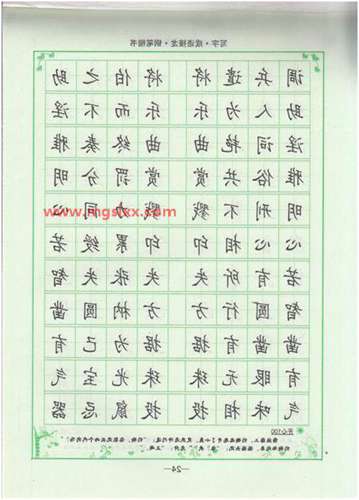 写字·成语接龙·钢笔楷书
调兵遣将 将伯之助
助人为乐 乐而不淫
淫词艳曲 曲终奏雅
雅俗共赏 赏罚分明
明刑不戮 戮力同心
心心相印 印累绶若
若有所失 失张失智
智圆行方 方枘圆凿
凿凿有据 据为己有
有眼无珠 珠光宝气
气味相投 投鼠忌器
开心100
—24—